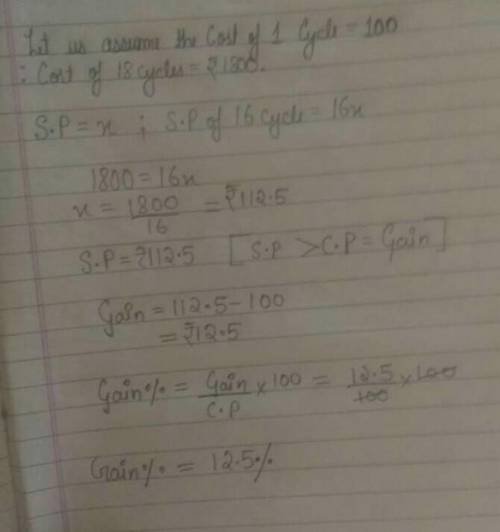 Let us assume the Cost of 1 Cycle = 100
∴ Cost of 18 cycles = ₹1800.
S.P = x ; S.P of 16 Cycle = 16x
1800 = 16x
x = 1800/16 = ₹112.5
S.P = ₹112.5 [S.P > C.P = Gain]
Gain = 112.5 - 100
= ₹12.5
Gain% = Gain/C.P × 100 = 12.5/100 × 100
Gain% = 12.5%